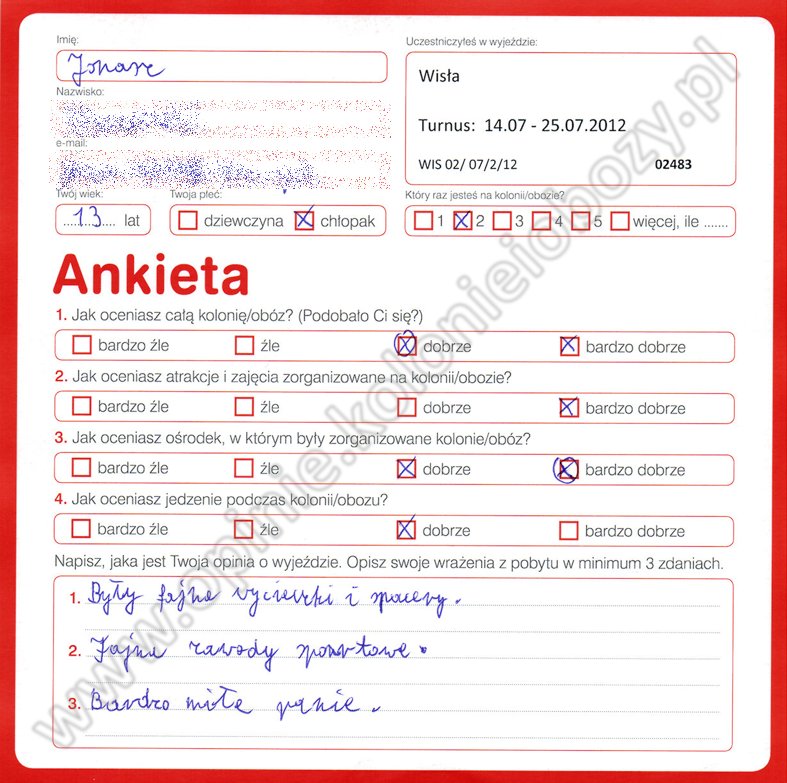 Imię:
Uczestniczyłeś w wyjeździe:
Wisła
Nazwisko:
Turnus: 14.07 - 25.07.2012
e-mail:
WIS 02/ 07/2/12 02483
Twój wiek:
Twoja płeć:
Który raz jesteś na kolonii/obozie?
13 lat
dziewczyna chłopak
1 2 3 4 5 więcej, ile .......
Ankieta
1. Jak oceniasz całą kolonię/obóz? (Podobało Ci się?)
bardzo źle źle dobrze bardzo dobrze
2. Jak oceniasz atrakcje i zajęcia zorganizowane na kolonii/obozie?
bardzo źle źle dobrze bardzo dobrze
3. Jak oceniasz ośrodek, w którym były zorganizowane kolonie/obóz?
bardzo źle źle dobrze bardzo dobrze
4. Jak oceniasz jedzenie podczas kolonii/obozu?
bardzo źle źle dobrze bardzo dobrze
Napisz, jaka jest Twoja opinia o wyjeździe. Opisz swoje wrażenia z pobytu w minimum 3 zdaniach.
1. Były fajne wycieczki i spacery.
2. Fajne zawody sportowe.
3. Bardzo miłe panie.
www.opinie.kolonieiobozy.pl